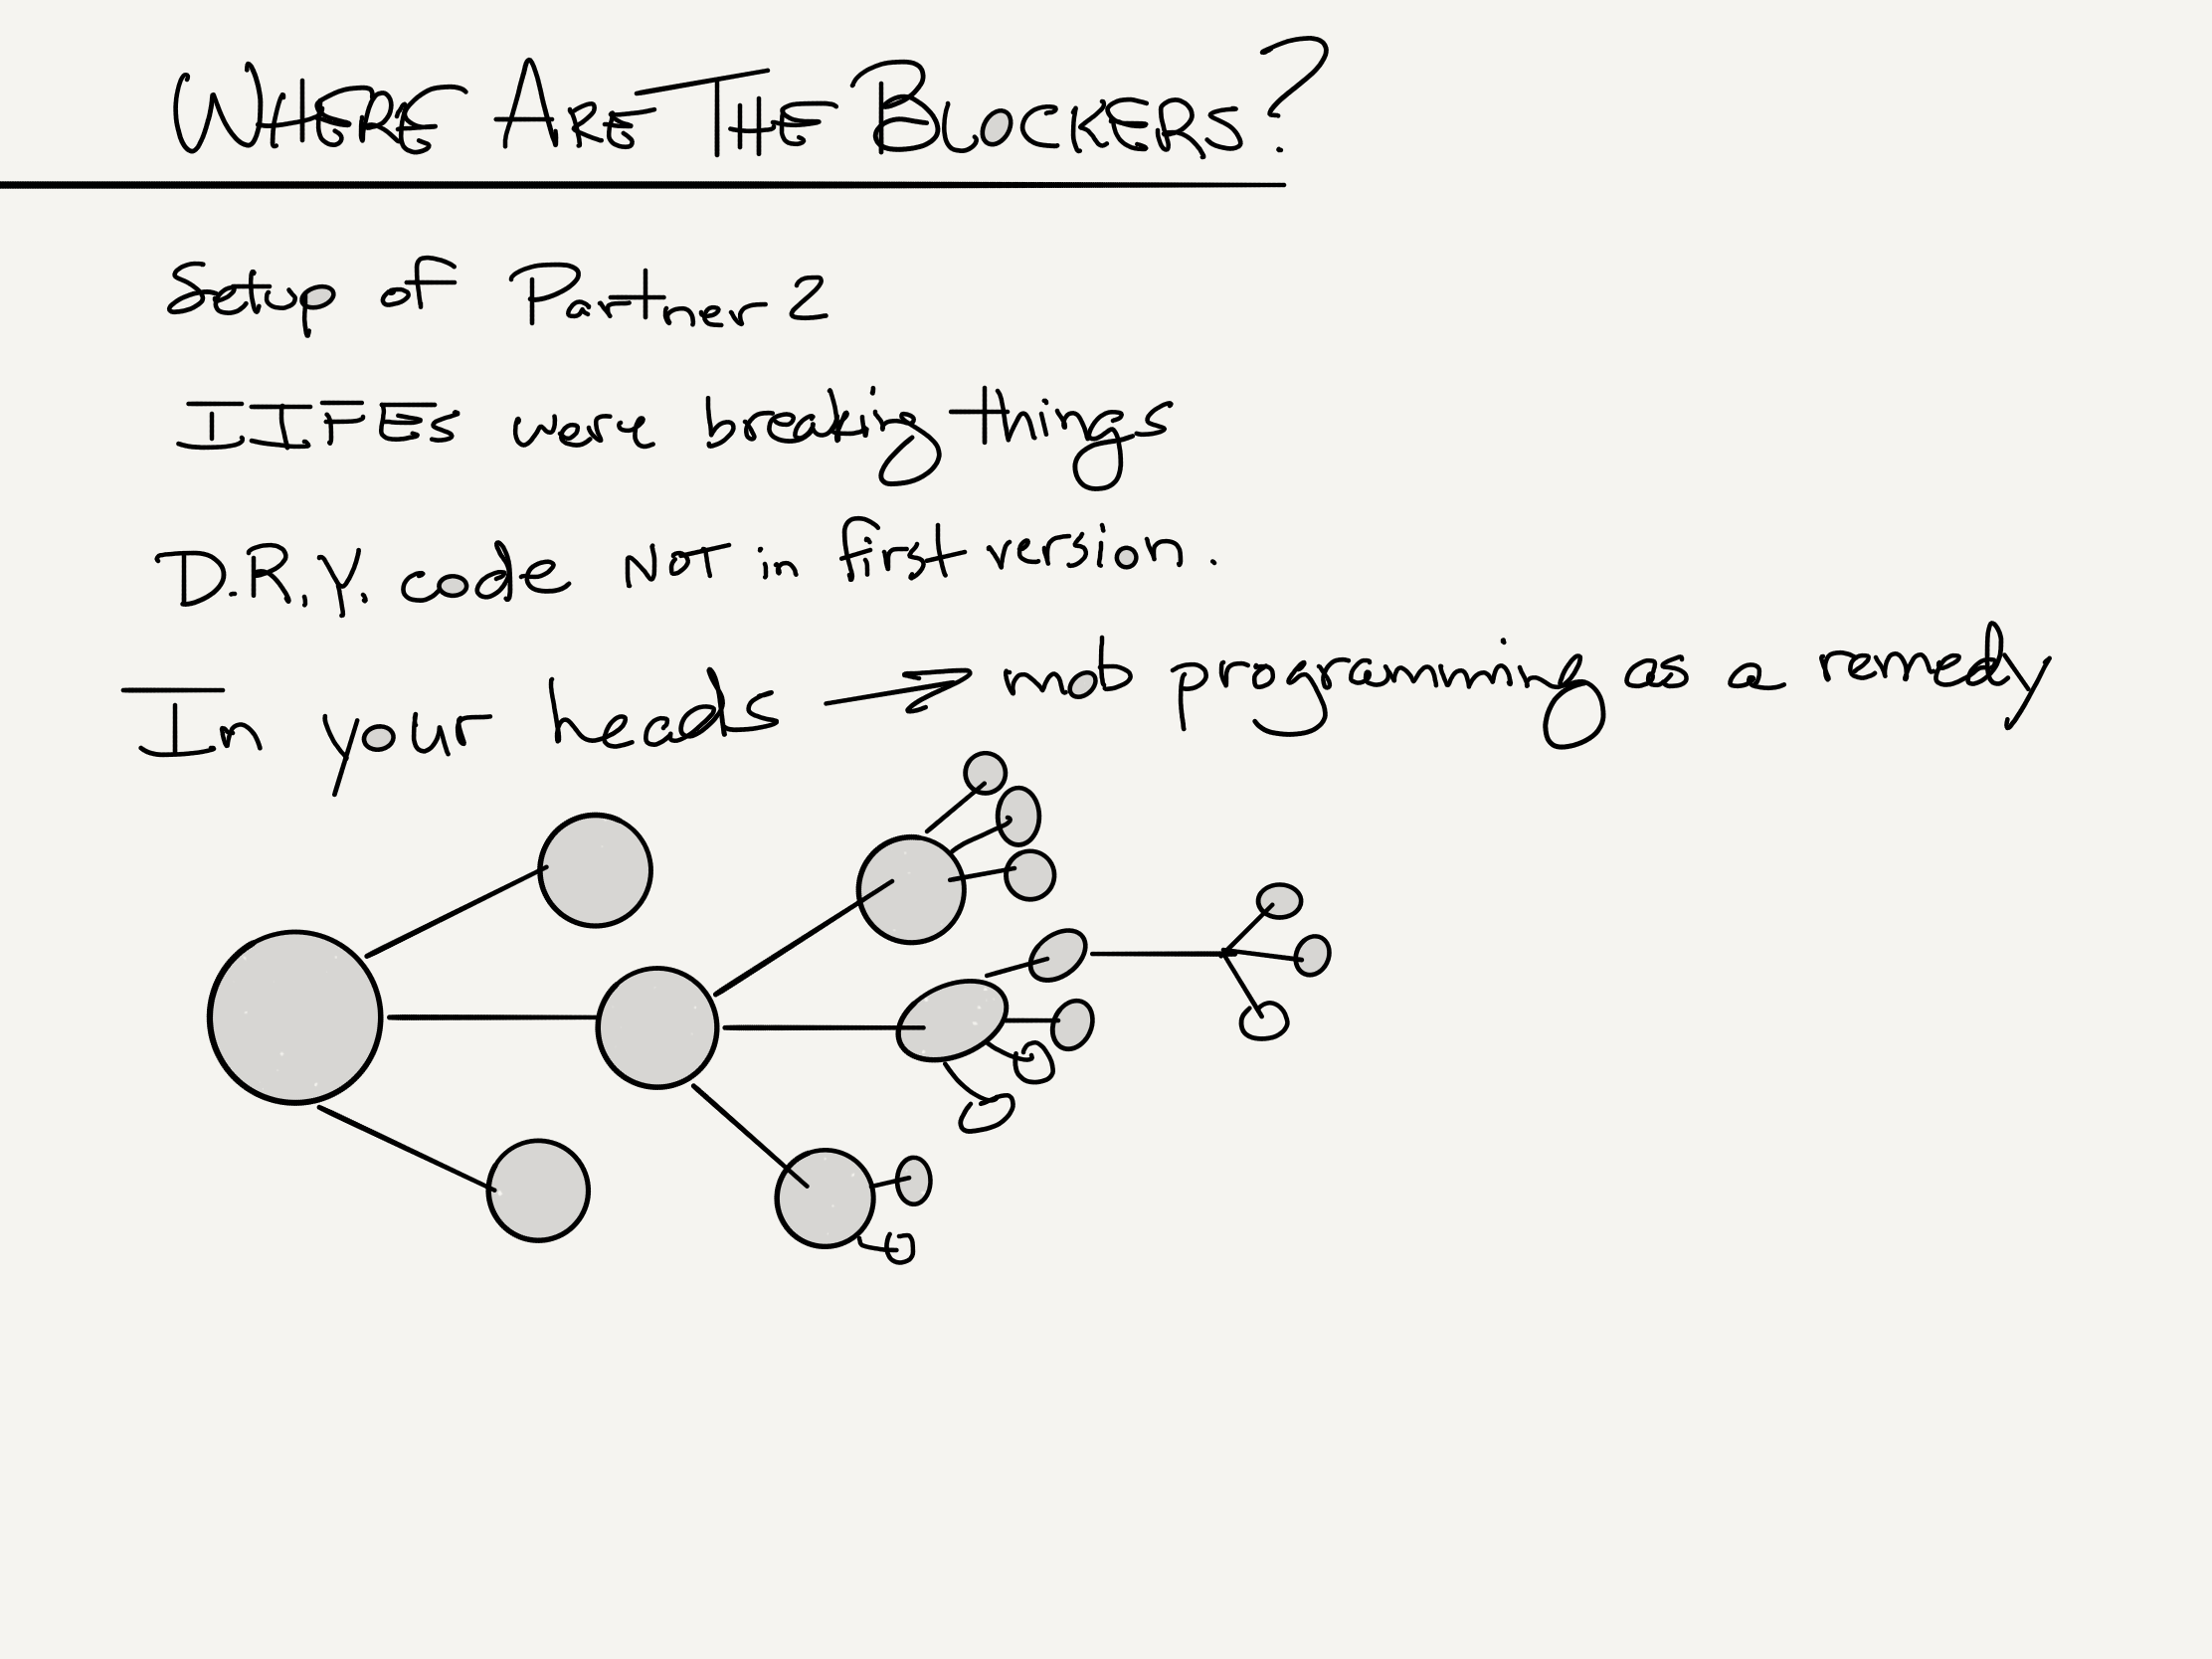 WHERE ARE THE BLOCKERS?
Setup of Partner 2
IIFEs were breaking things
D.R.Y. code NOT in first version.
In your heads → mob programming as a remedy